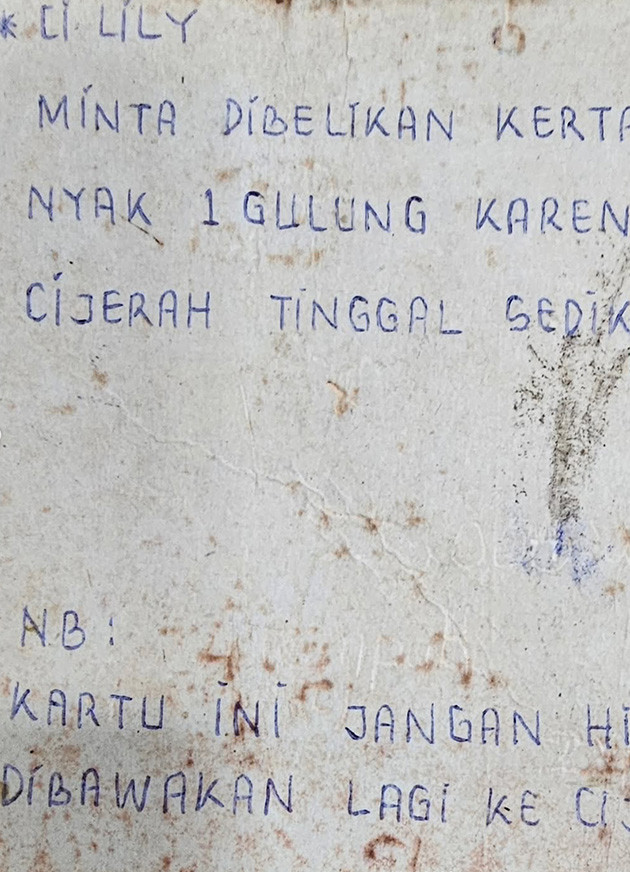 * CI LILY
MINTA DIBELIKAN KERTA
NYAK 1 GULUNG KAREN
CIJERAH TINGGAL SEDIK
NB:
KARTU INI JANGAN HI
DIBAWAKAN LAGI KE CIJ